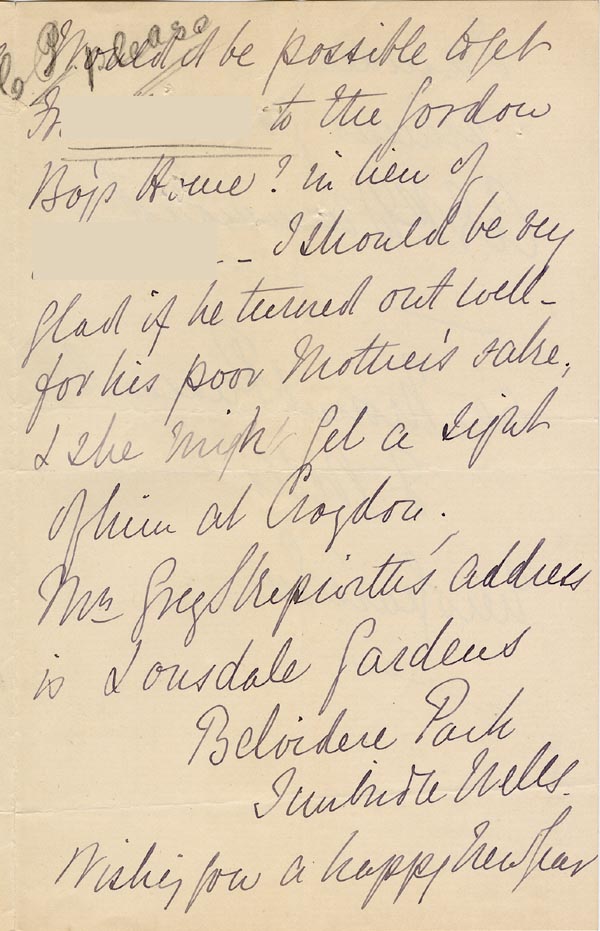 please
Would it be possible to get
Fr. to the Gordon
Boys Home? in lieu of
-- I should be very
glad if he turned out well -
for his poor Mother's sake,
& she might get a sight
of him at Croydon.
Mrs Greg Skepworth's address
is Lonsdale Gardens
Belvidere Park
Tunbridge Wells.
Wishing you a happy New Year